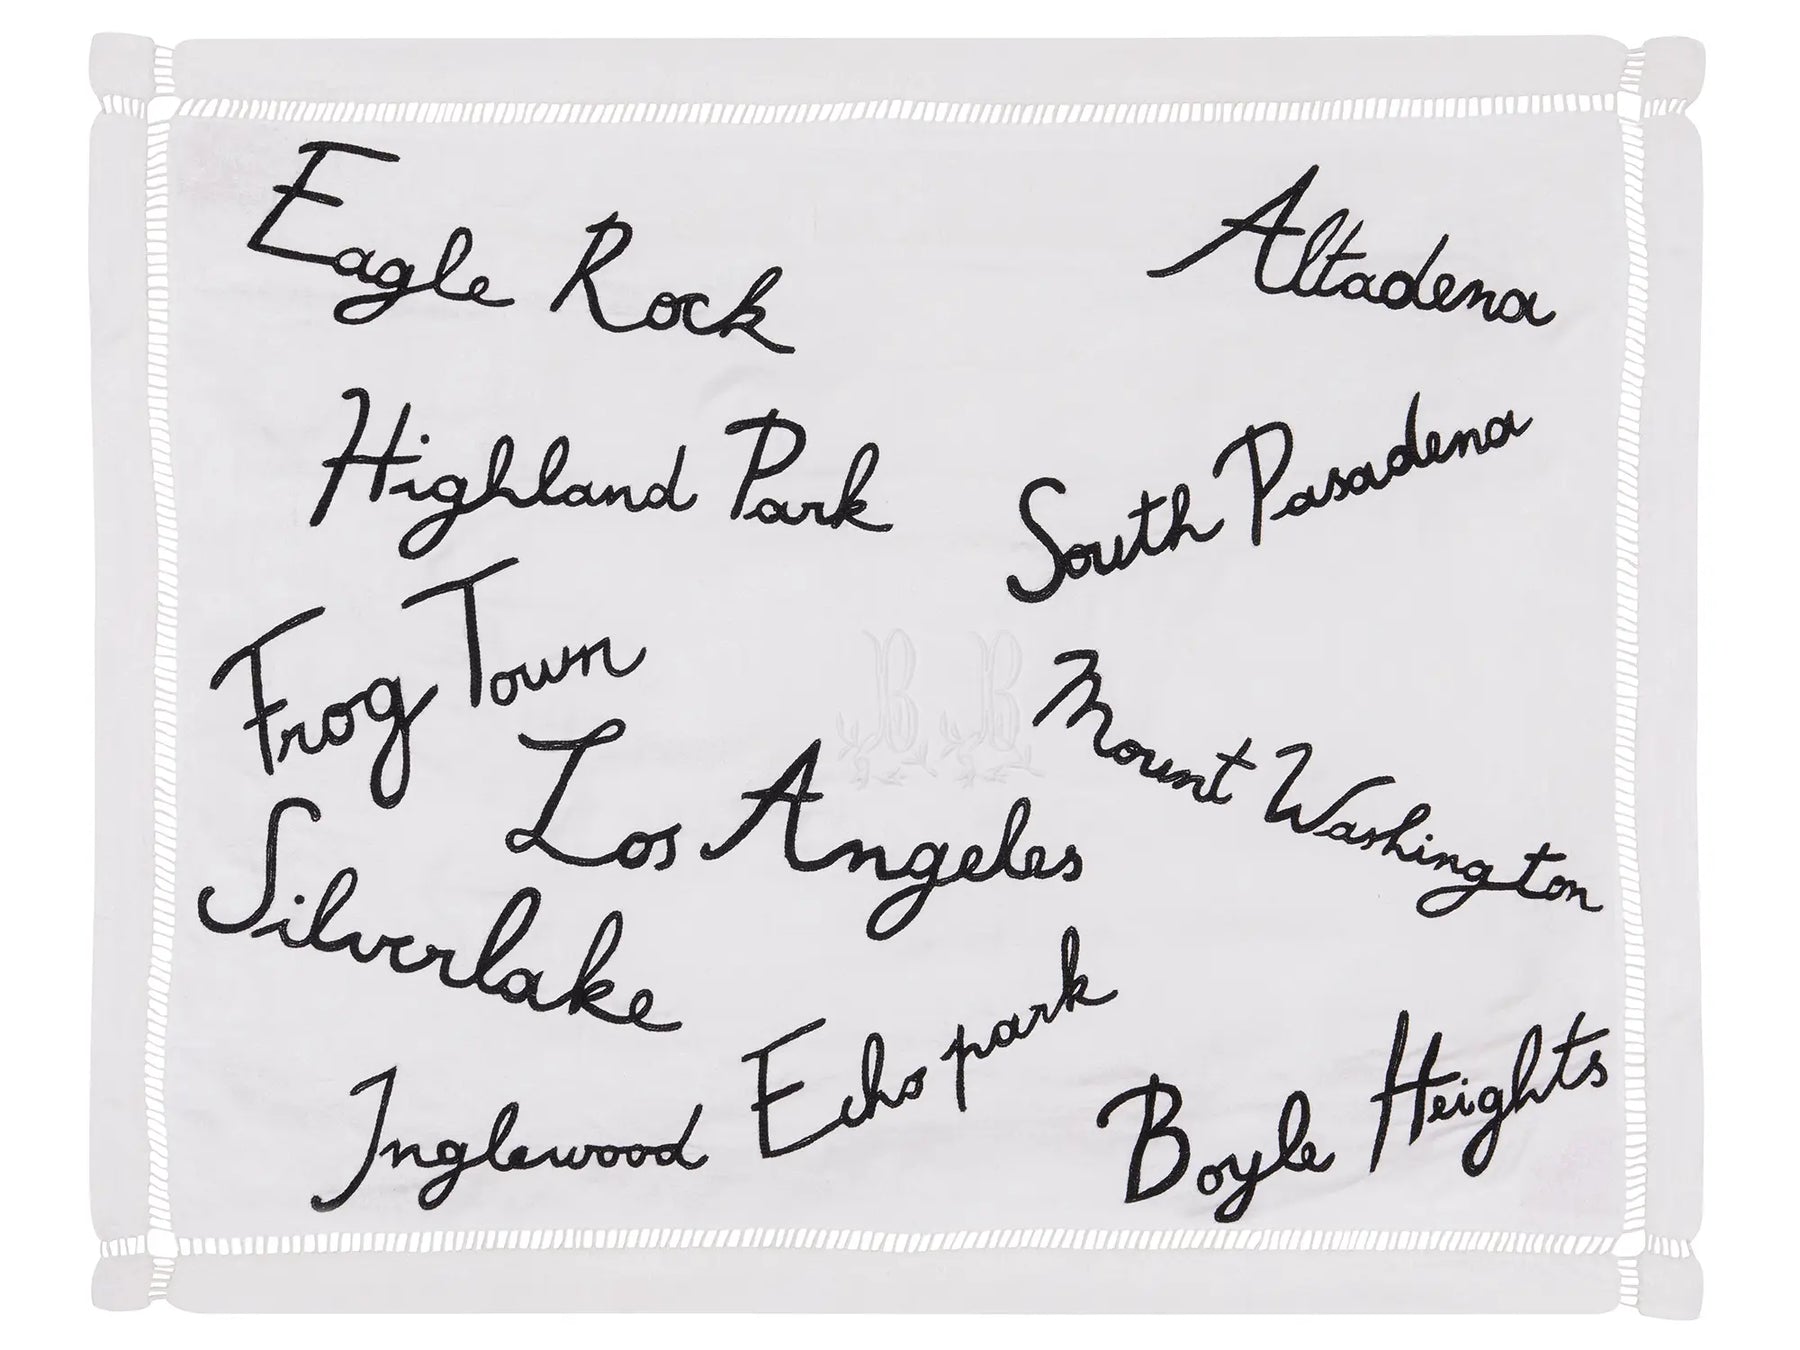 Eagle Rock
Altadena
Highland Park
South Pasadena
Frog Town
B B
Mount Washington
Los Angeles
Silverlake
Echo park
Inglewood
Boyle Heights